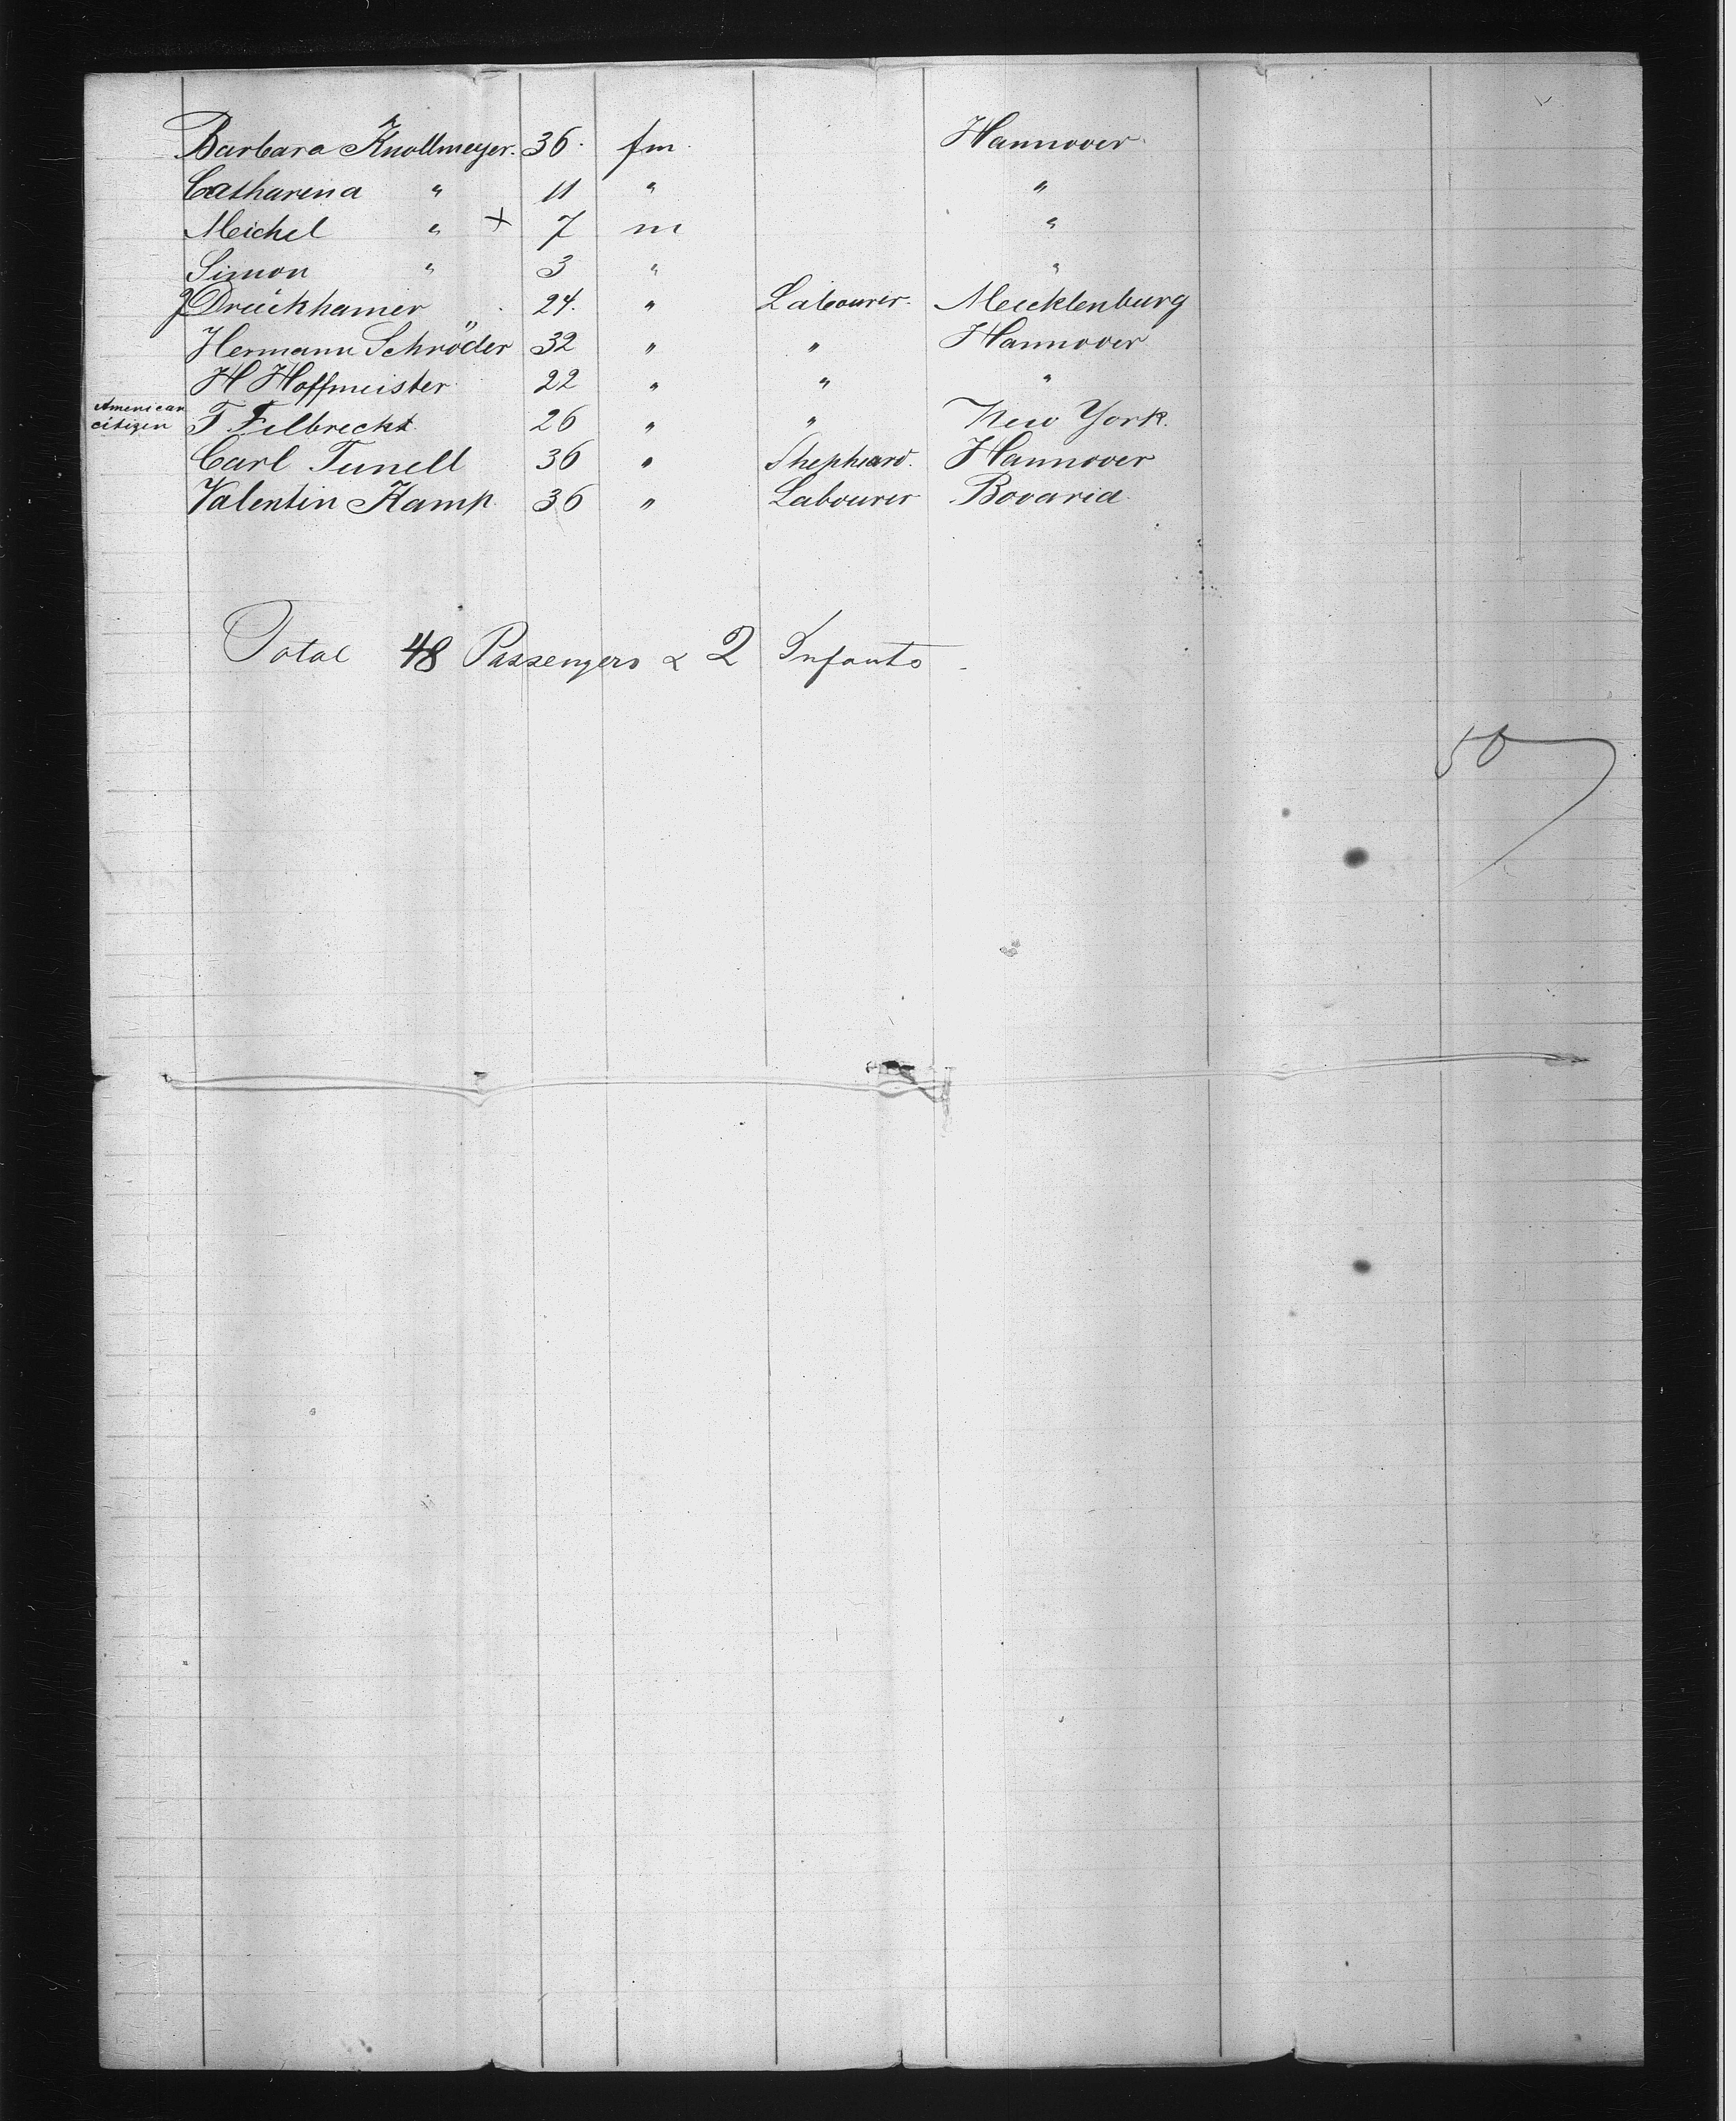 Barbara Knollmeyer. 36. fm. Hannover.
Catharina " 11 " "
Meichel " + 7 m "
Simon " 3 " "
J Drückhamer 24. " Labourer. Mecklenburg
Hermann Schröder 32 " " Hannover
H Hoffmeister 22 " " "
American citizen F. Filbrecht. 26 " " New York.
Carl Tunell 36 " Shepheard. Hannover
Valentin Kamp. 36 " Labourer Bovaria.
Total 48 Passengers & 2 Infants
50